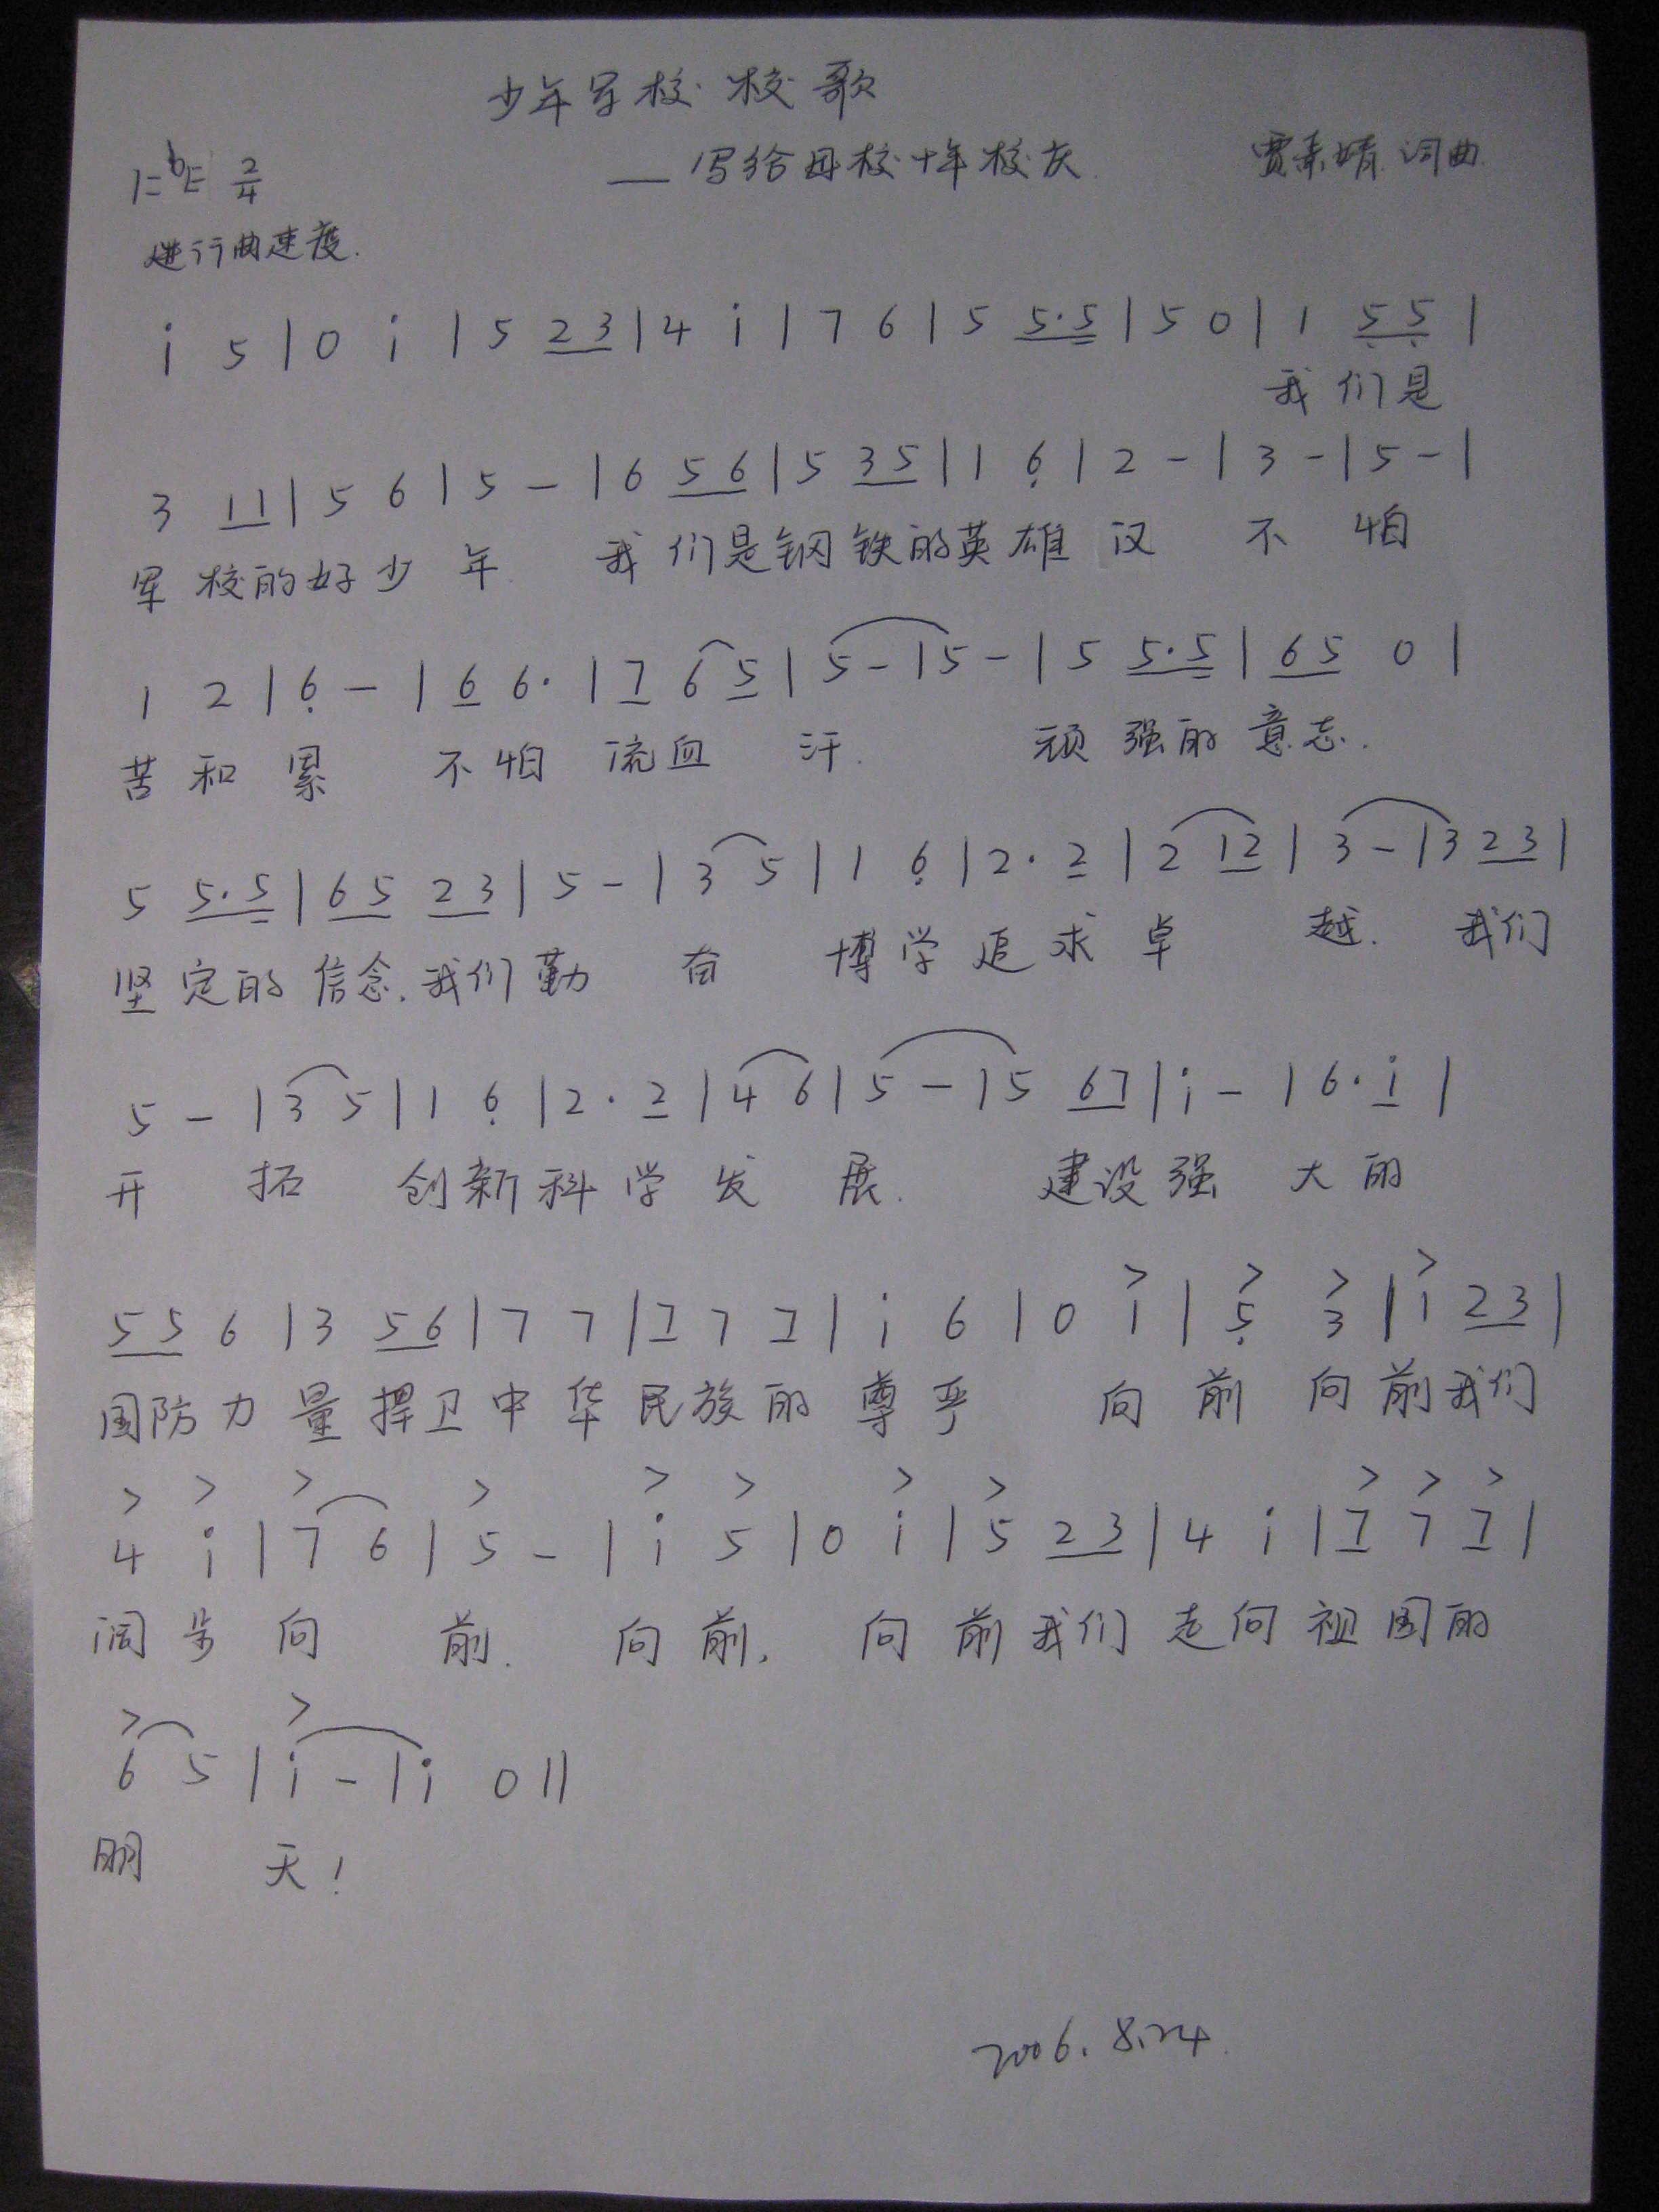 少年军校校歌
——写给母校十年校庆 贾素婧 词曲.
1=bE 2/4
进行曲速度.
i 5 | 0 i | 5 2 3 | 4 i | 7 6 | 5 5·5 | 5 0 | 1 5 5 |
我们是
3 1 1 | 5 6 | 5 - | 6 5 6 | 5 3 5 | 1 6 | 2 - | 3 - | 5 - |
军校的好少年 我们是钢铁的英雄汉 不怕
1 2 | 6 - | 6 6· | 7 6 5 | 5 - | 5 - | 5 5·5 | 6 5 0 |
苦和累 不怕流血汗. 顽强的意志.
5 5·5 | 6 5 2 3 | 5 - | 3 5 | 1 6 | 2· 2 | 2 1 2 | 3 - | 3 2 3 |
坚定的信念.我们勤奋 博学追求卓越. 我们
5 - | 3 5 | 1 6 | 2· 2 | 4 6 | 5 - | 5 6 7 | i - | 6· i |
开拓 创新科学发展. 建设强大的
5 5 6 | 3 5 6 | 7 7 | 7 7 7 | i 6 | 0 i | 5 3 | i 2 3 |
国防力量捍卫中华民族的尊严 向前向前我们
4 i | 7 6 | 5 - | i 5 | 0 i | 5 2 3 | 4 i | 7 7 7 |
阔步向前. 向前, 向前我们走向祖国的
6 5 | i - | i 0 ||
明天!
2006.8.24.